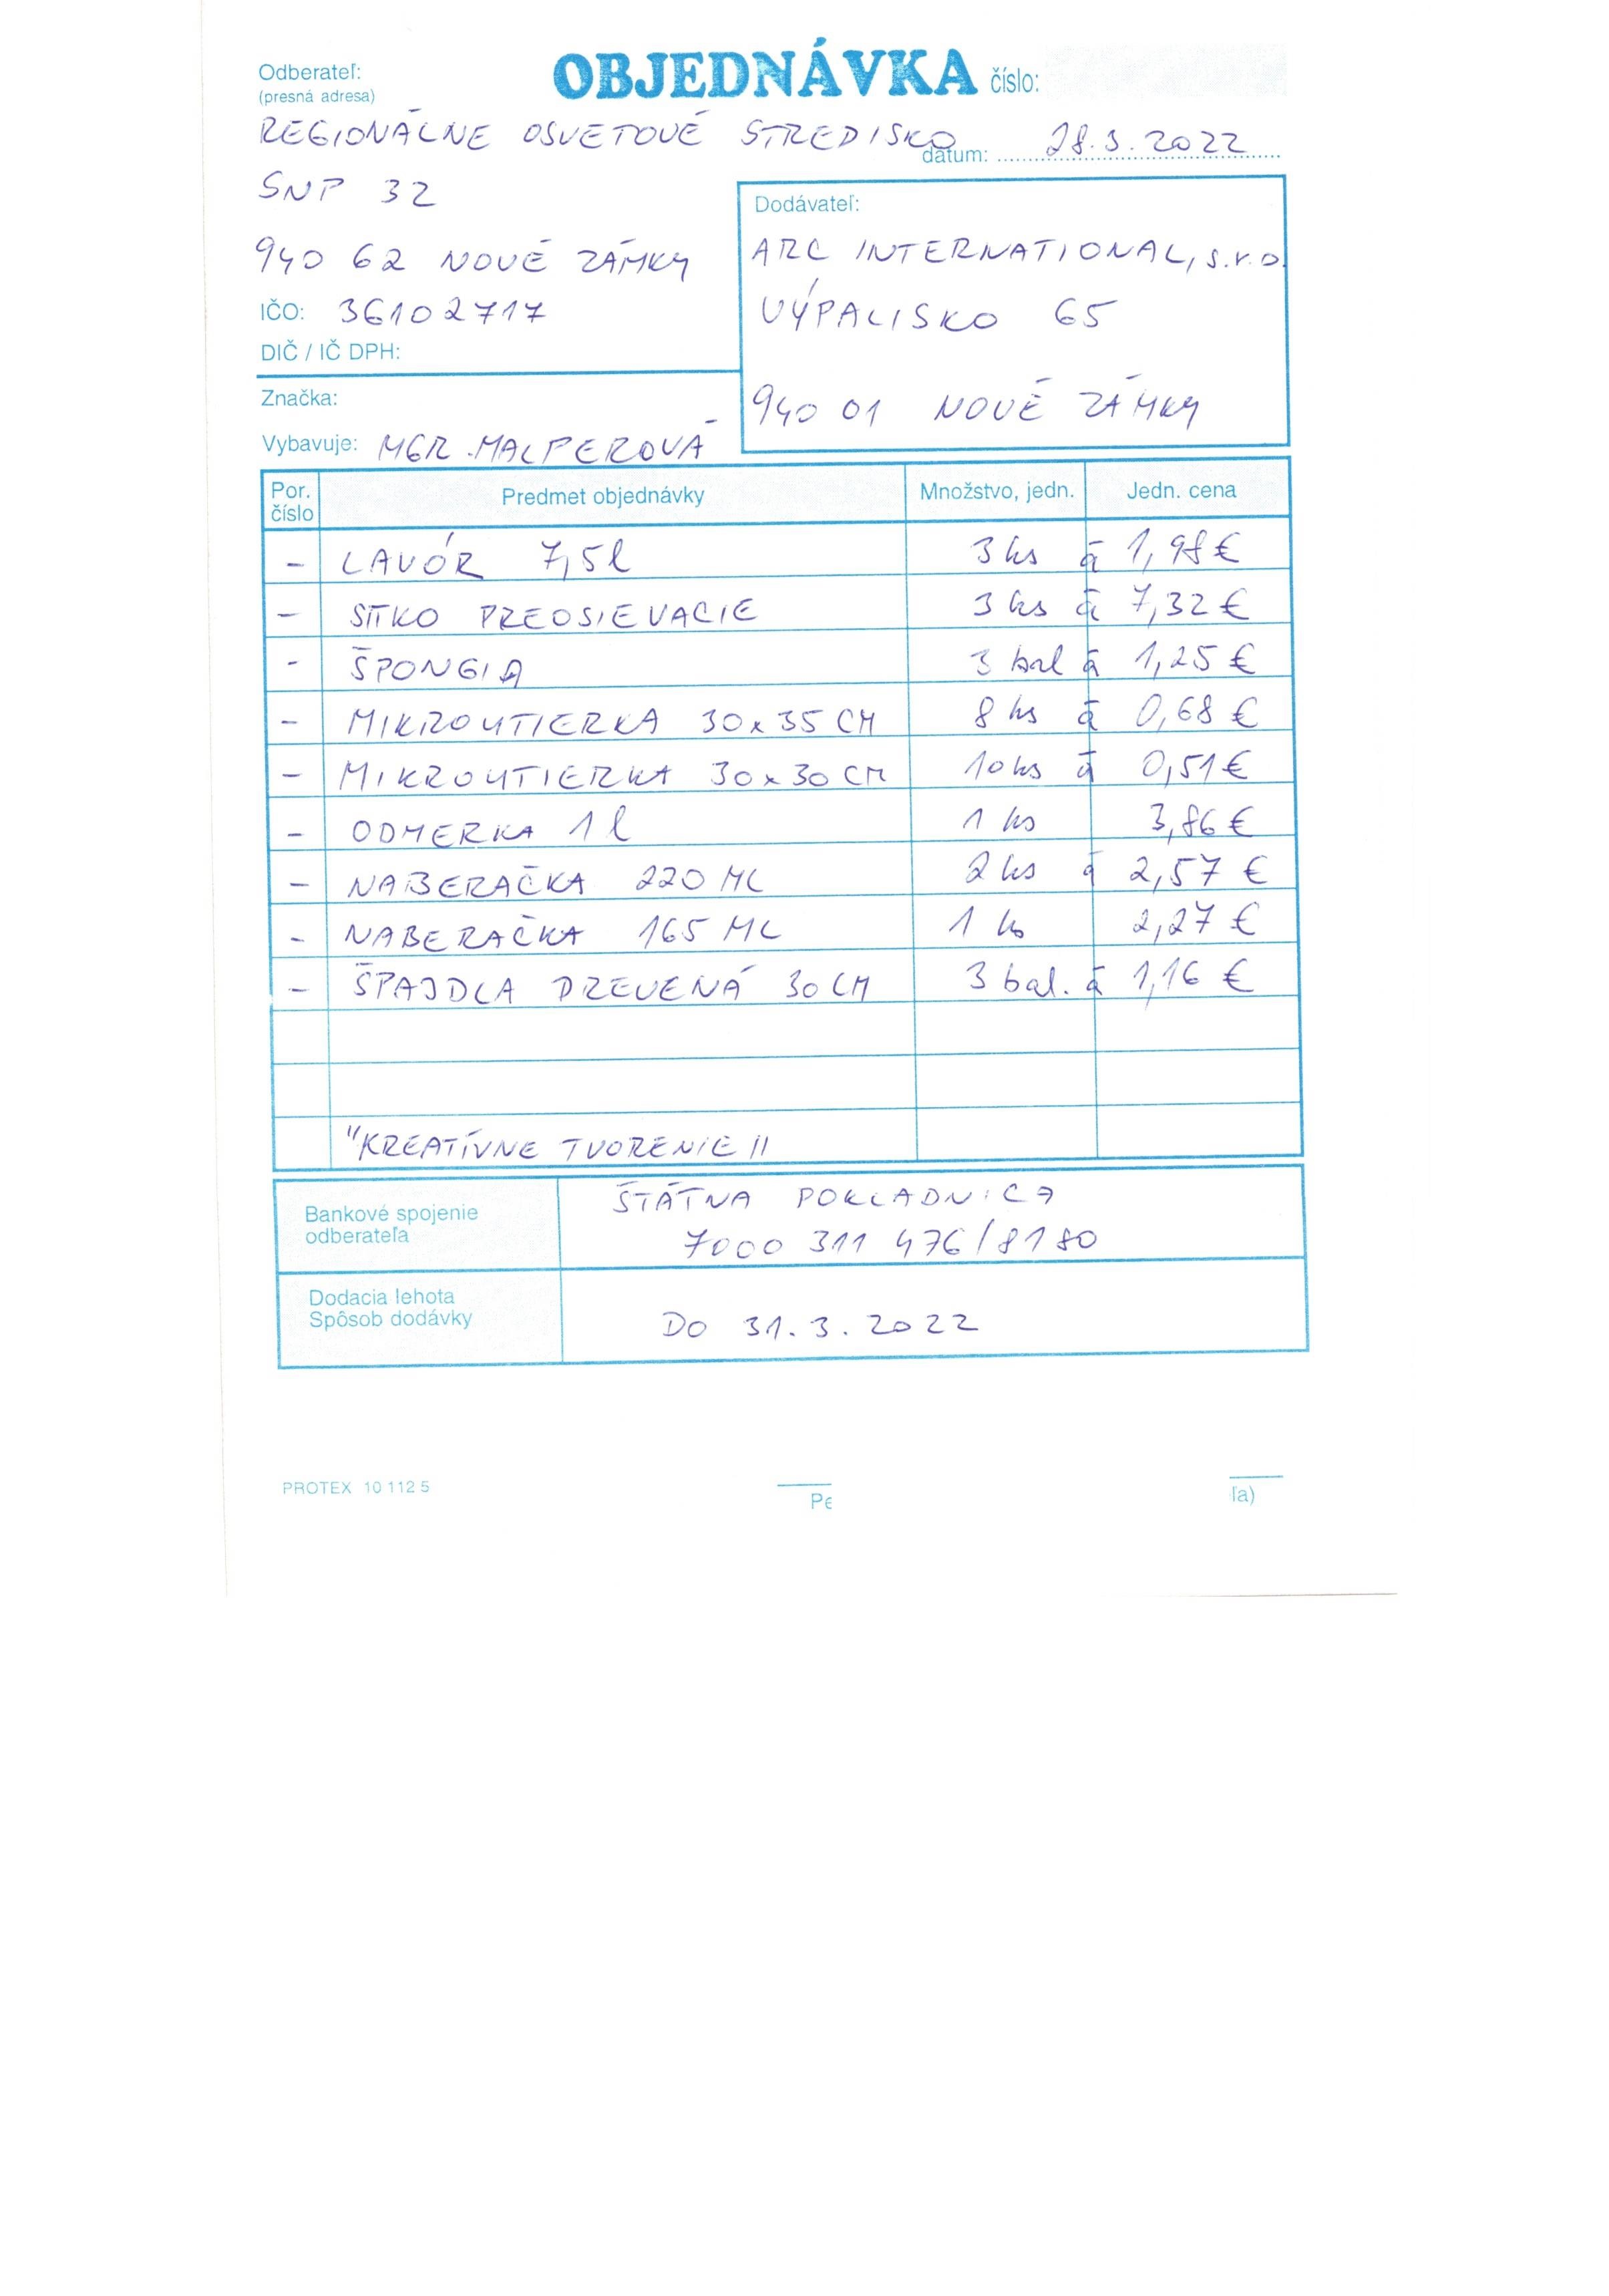 Odberateľ:
(presná adresa)
OBJEDNÁVKA číslo:
REGIONÁLNE OSVETOVÉ STREDISKO
dátum: 28.3.2022
SNP 32
940 62 NOVÉ ZÁMKY
IČO: 36102717
DIČ / IČ DPH:
Dodávateľ:
ARC INTERNATIONAL, s.r.o.
VÝPALISKO 65
940 01 NOVÉ ZÁMKY
Značka:
Vybavuje: MGR. MALPEROVÁ
Por. číslo Predmet objednávky Množstvo, jedn. Jedn. cena
- LAVÓR 7,5l 3 ks á 1,98 €
- SITKO PREOSIEVACIE 3 ks á 7,32 €
- ŠPONGIA 3 bal á 1,25 €
- MIKROUTIERKA 30x35 CM 8 ks á 0,68 €
- MIKROUTIERKA 30x30 CM 10 ks á 0,51 €
- ODMERKA 1l 1 ks 3,86 €
- NABERAČKA 220 ML 2 ks á 2,57 €
- NABERAČKA 165 ML 1 ks 2,27 €
- ŠPAJDLA DREVENÁ 30 CM 3 bal. á 1,16 €
"KREATÍVNE TVORENIE II
Bankové spojenie
odberateľa
ŠTÁTNA POKLADNICA
7000 311 476/8180
Dodacia lehota
Spôsob dodávky
DO 31.3.2022
PROTEX 10 112 5
Pe
ľa)